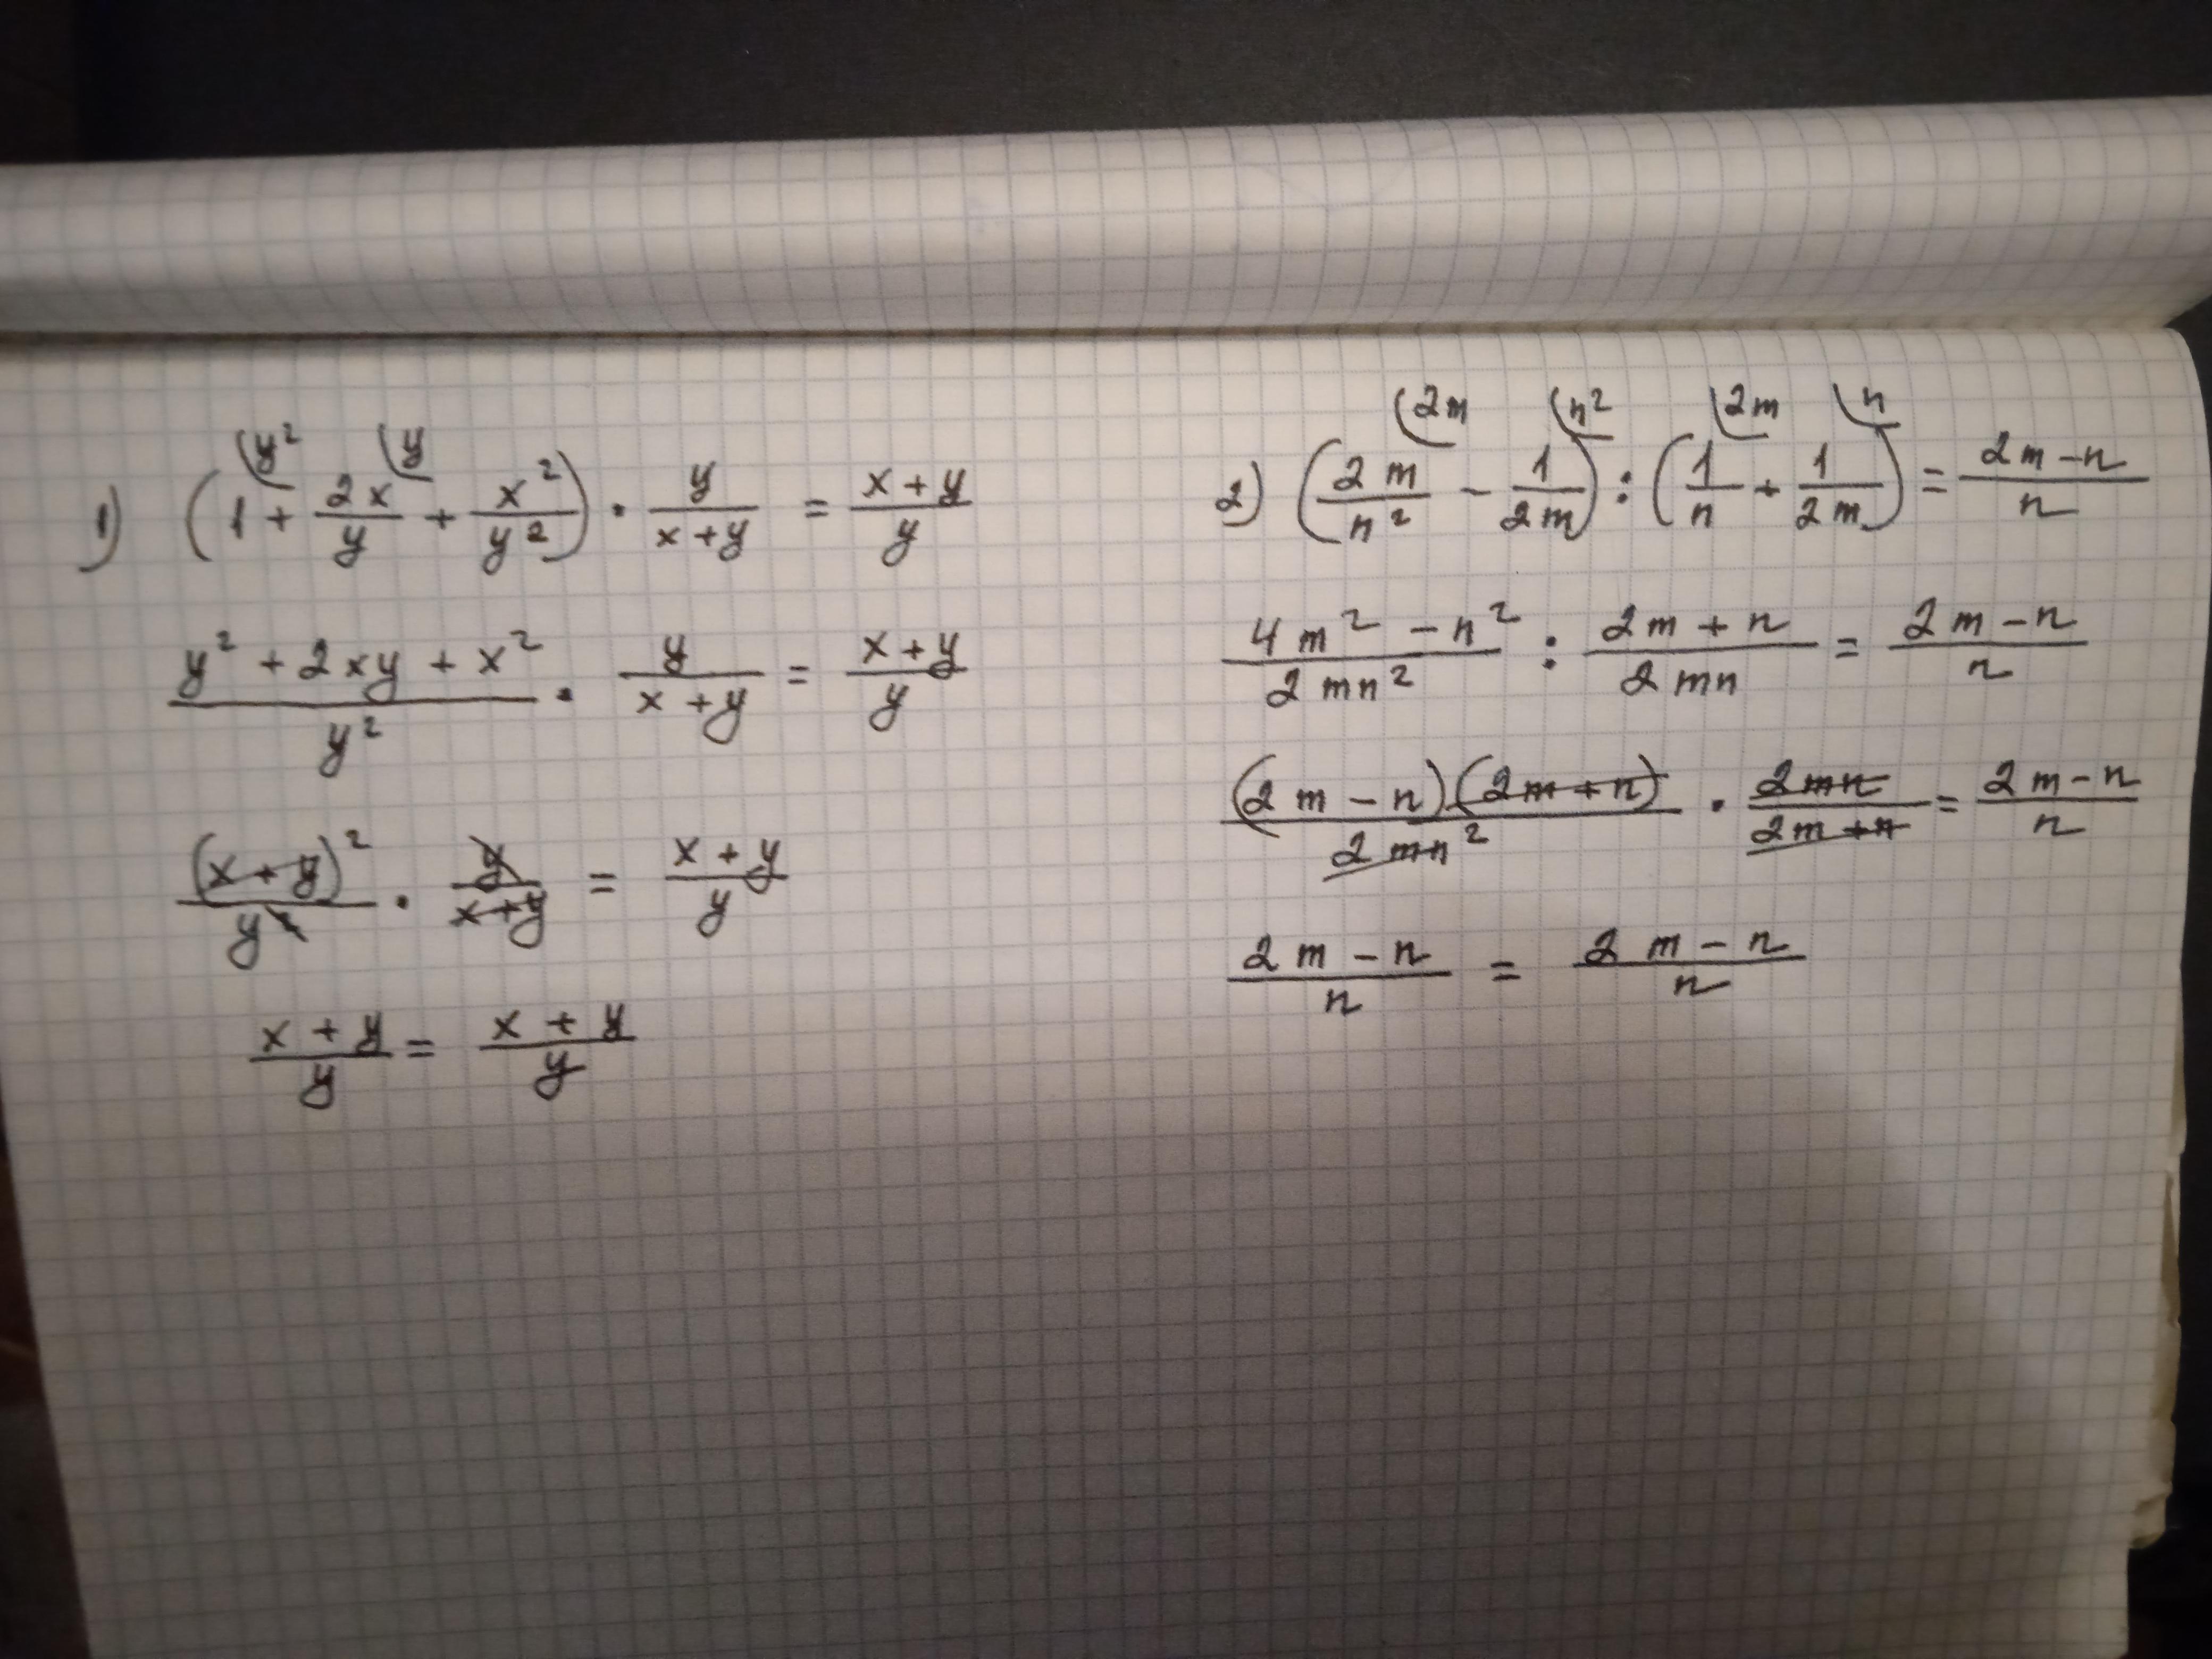 y² y
1) (1 + 2x/y + x²/y²) · y/(x+y) = (x+y)/y
(y² + 2xy + x²)/y² · y/(x+y) = (x+y)/y
(x+y)²/y² · y/(x+y) = (x+y)/y
(x+y)/y = (x+y)/y
2m n² 2m n
2) (2m/n² - 1/2m) : (1/n + 1/2m) = (2m-n)/n
(4m² - n²)/2mn² : (2m+n)/2mn = (2m-n)/n
(2m-n)(2m+n)/2mn² · 2mn/(2m+n) = (2m-n)/n
(2m-n)/n = (2m-n)/n